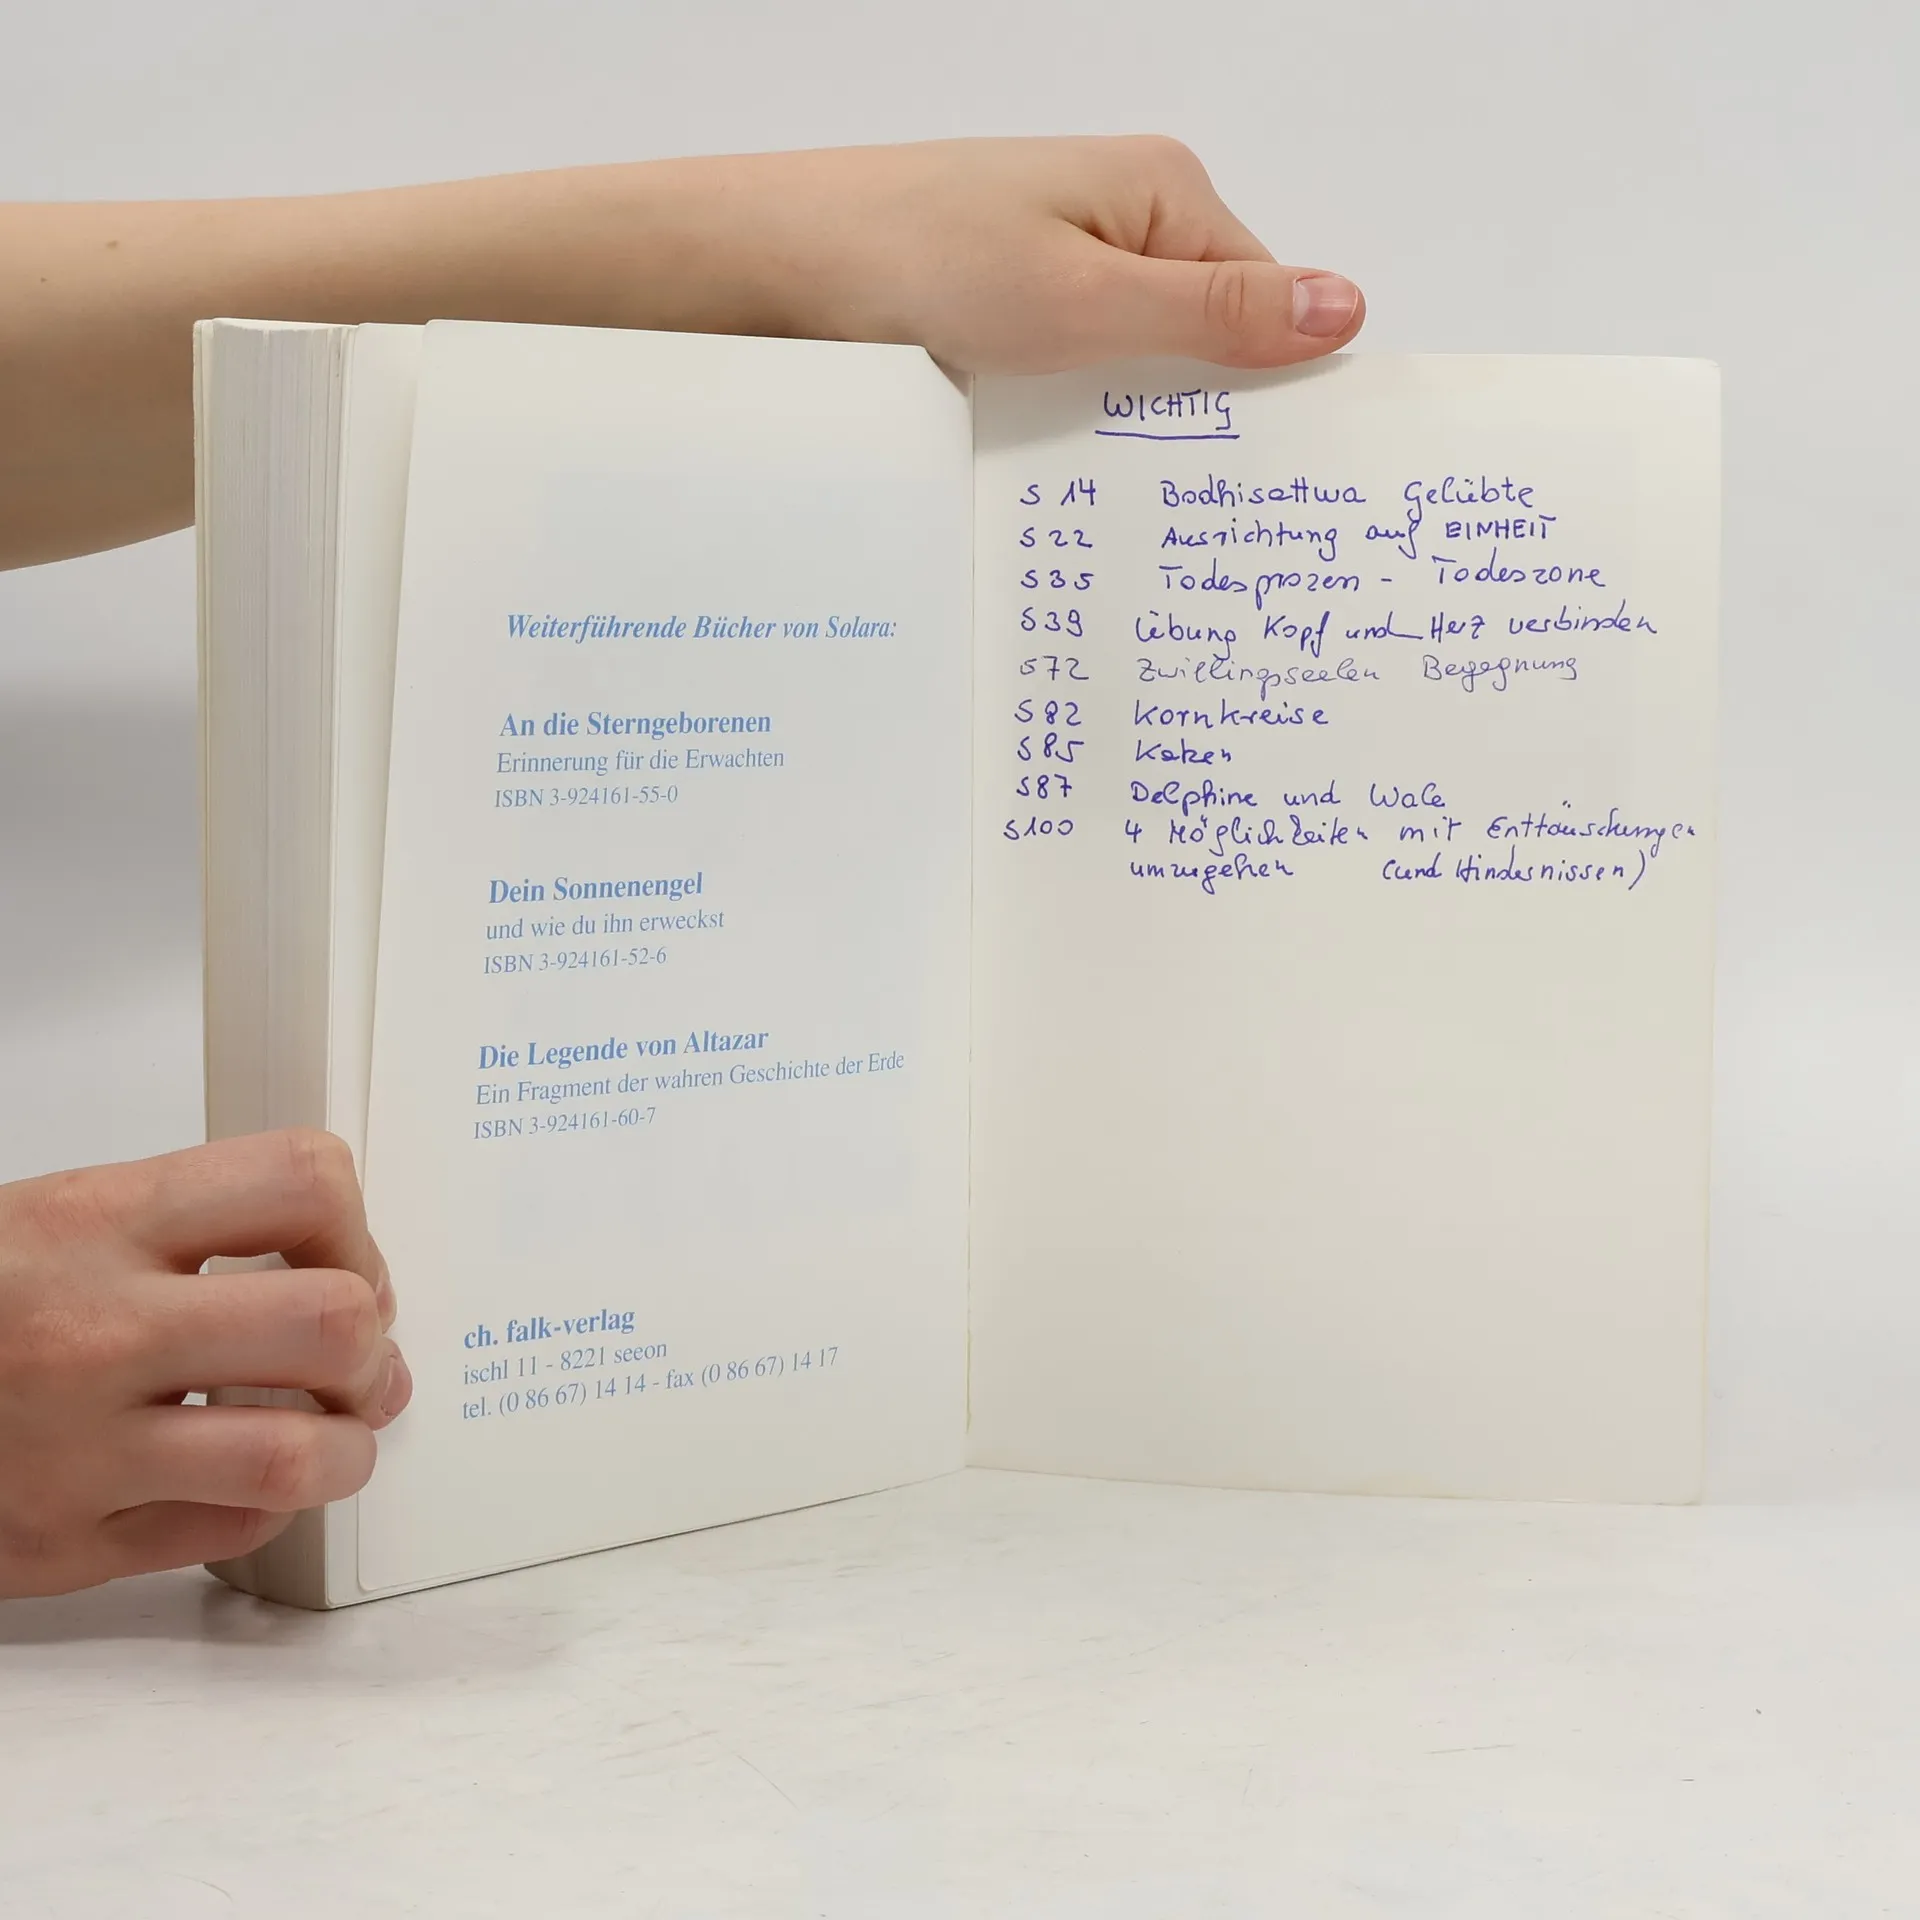 Weiterführende Bücher von Solara:
An die Sterngeborenen
Erinnerung für die Erwachten
ISBN 3-924161-55-0
Dein Sonnenengel
und wie du ihn erweckst
ISBN 3-924161-52-6
Die Legende von Altazar
Ein Fragment der wahren Geschichte der Erde
ISBN 3-924161-60-7
ch. falk-verlag
ischl 11 - 8221 seeon
tel. (0 86 67) 14 14 - fax (0 86 67) 14 17
WICHTIG
S 14 Bodhisattwa Gelübte
S 22 Ausrichtung auf EINHEIT
S 35 - Todeszone
S 39 Übung Kopf und Herz verbinden
S 72 Zwillingsseelen Begegnung
S 82 Kornkreise
S 85 Katzen
S 87 Delphine und Wale
S 100 4 Möglichkeiten mit Enttäuschungen
umzugehen (und Hindernissen)